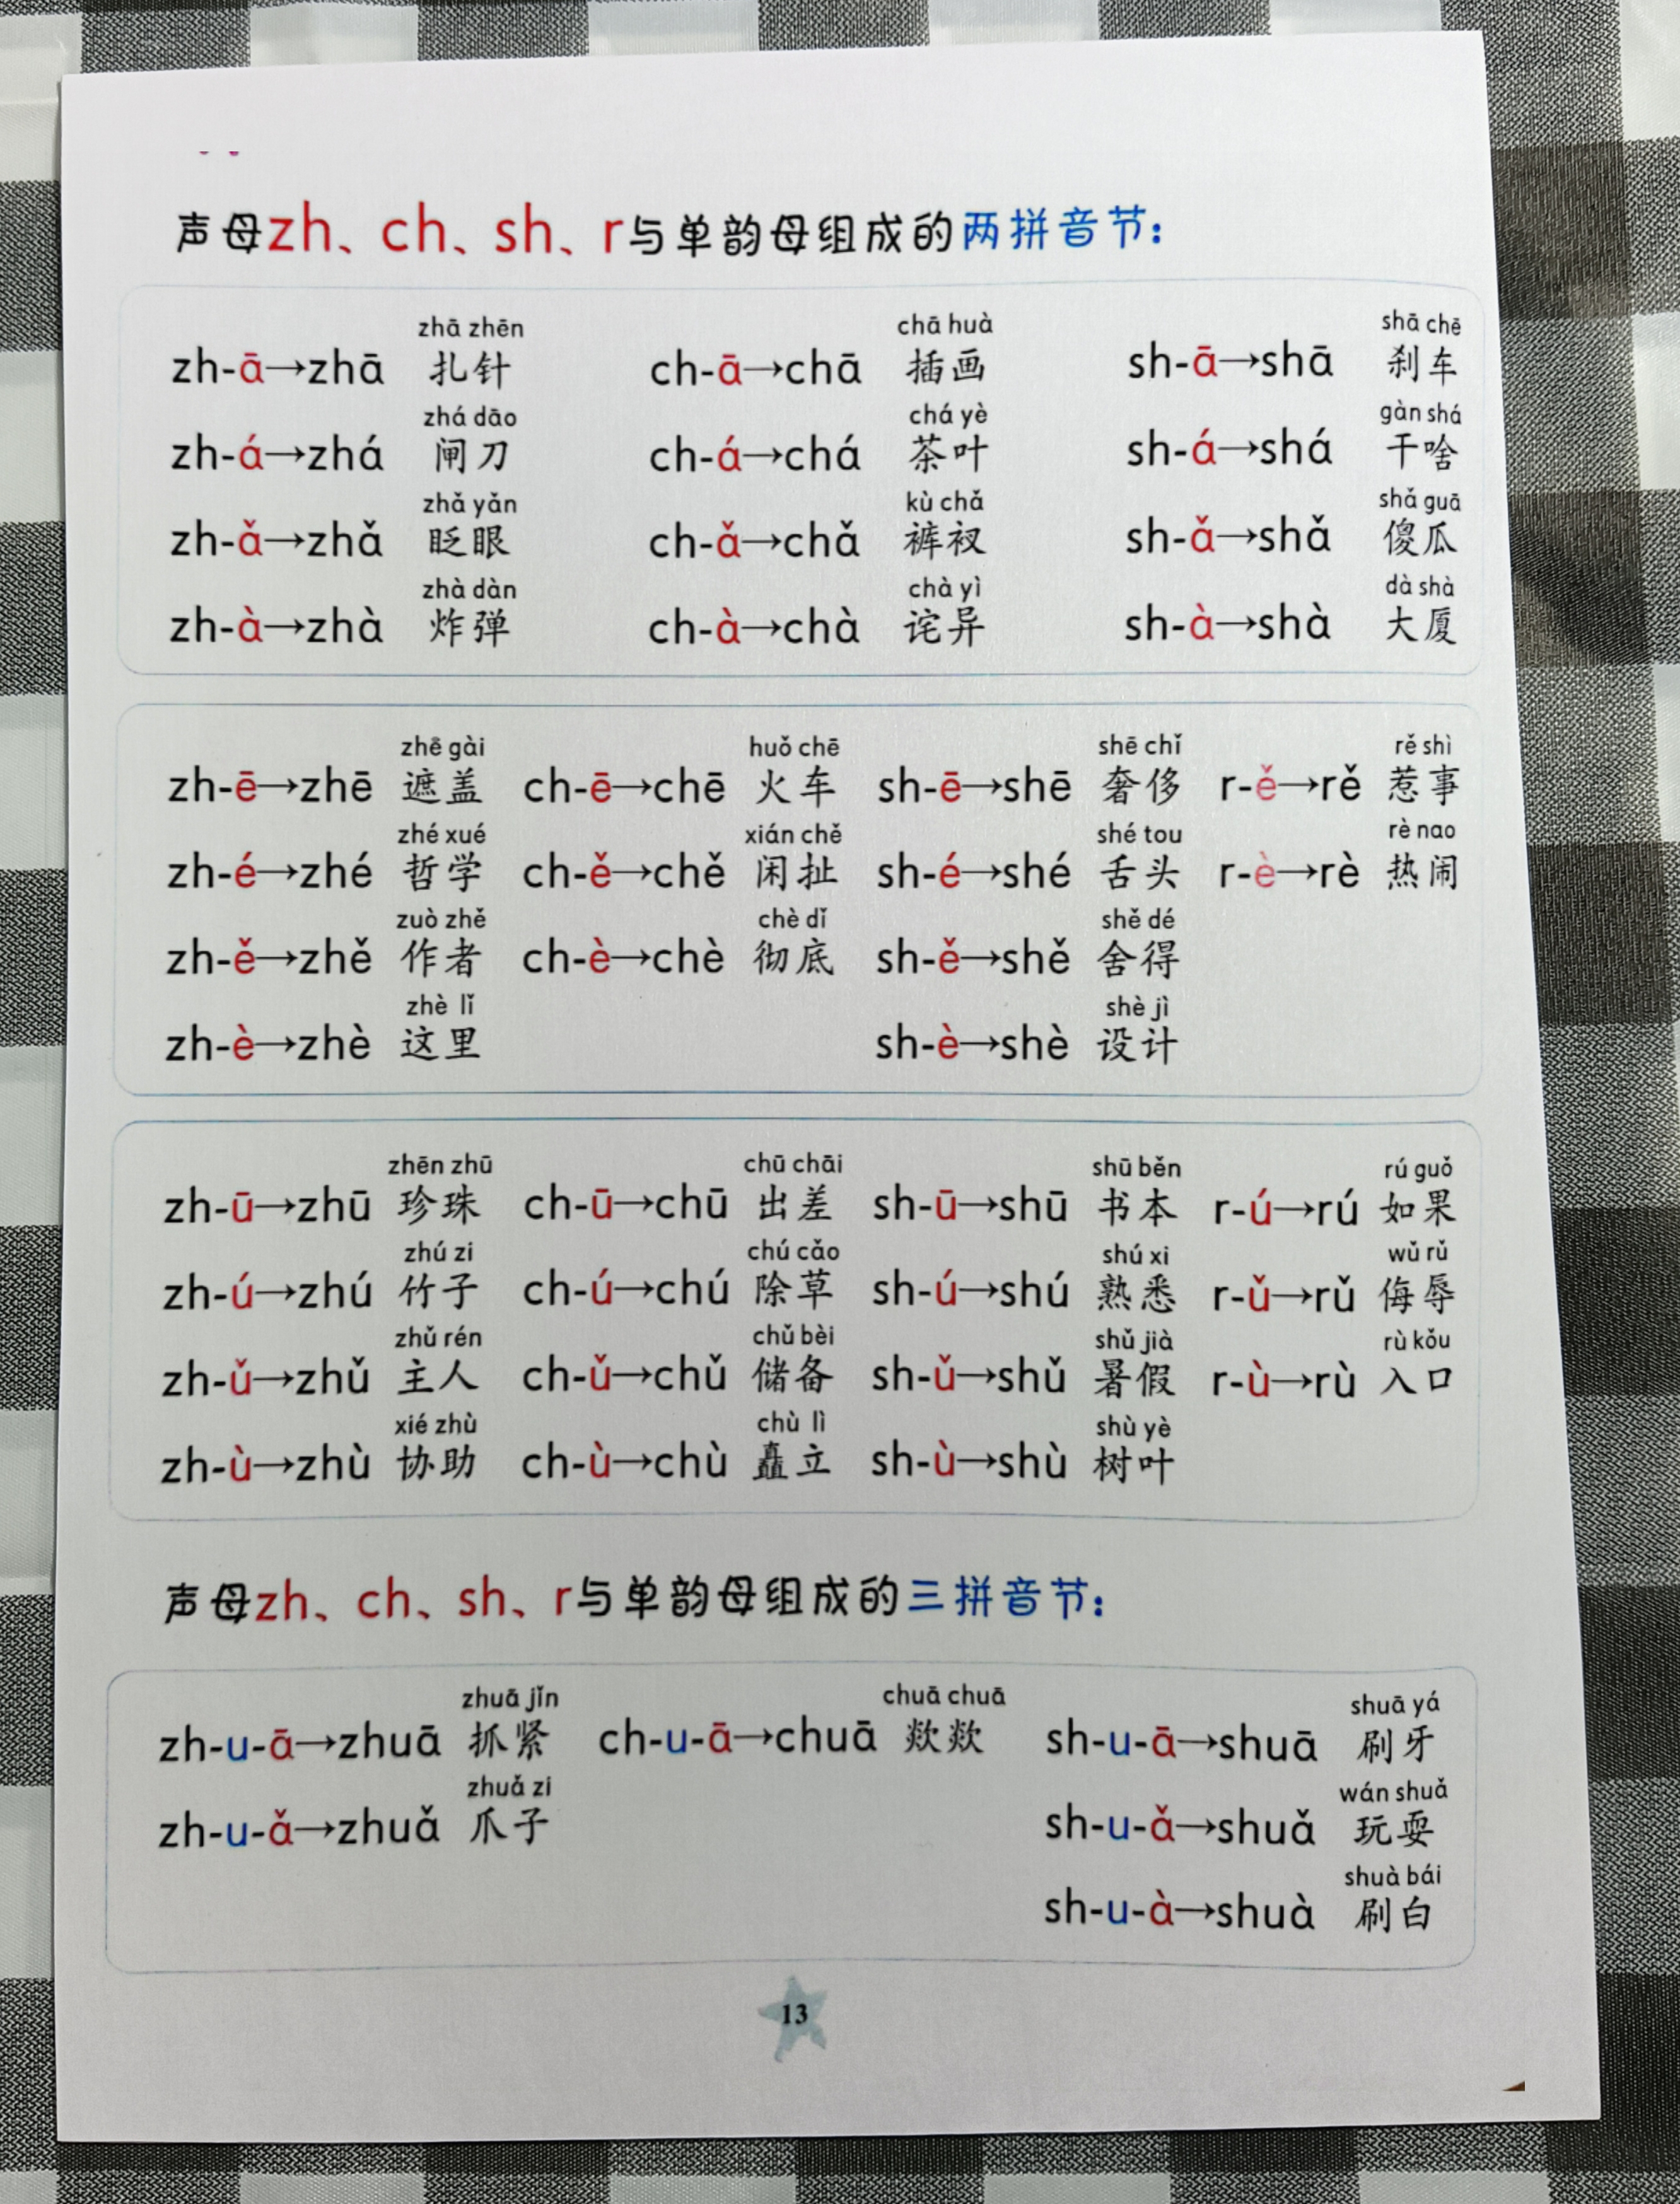 声母zh、ch、sh、r与单韵母组成的两拼音节：
zhā zhēn chā huà shā chē
zh-ā→zhā 扎针 ch-ā→chā 插画 sh-ā→shā 刹车
zhá dāo chá yè gàn shá
zh-á→zhá 闸刀 ch-á→chá 茶叶 sh-á→shá 干啥
zhǎ yǎn kù chǎ shǎ guā
zh-ǎ→zhǎ 眨眼 ch-ǎ→chǎ 裤衩 sh-ǎ→shǎ 傻瓜
zhà dàn chà yì dà shà
zh-à→zhà 炸弹 ch-à→chà 诧异 sh-à→shà 大厦
zhē gài huǒ chē shē chǐ rě shì
zh-ē→zhē 遮盖 ch-ē→chē 火车 sh-ē→shē 奢侈 r-ě→rě 惹事
zhé xué xián chě shé tou rè nao
zh-é→zhé 哲学 ch-ě→chě 闲扯 sh-é→shé 舌头 r-è→rè 热闹
zuò zhě chè dǐ shě dé
zh-ě→zhě 作者 ch-è→chè 彻底 sh-ě→shě 舍得
zhè lǐ shè jì
zh-è→zhè 这里 sh-è→shè 设计
zhēn zhū chū chāi shū běn rú guǒ
zh-ū→zhū 珍珠 ch-ū→chū 出差 sh-ū→shū 书本 r-ú→rú 如果
zhú zi chú cǎo shú xi wǔ rǔ
zh-ú→zhú 竹子 ch-ú→chú 除草 sh-ú→shú 熟悉 r-ǔ→rǔ 侮辱
zhǔ rén chǔ bèi shǔ jià rù kǒu
zh-ǔ→zhǔ 主人 ch-ǔ→chǔ 储备 sh-ǔ→shǔ 暑假 r-ù→rù 入口
xié zhù chù lì shù yè
zh-ù→zhù 协助 ch-ù→chù 矗立 sh-ù→shù 树叶
声母zh、ch、sh、r与单韵母组成的三拼音节：
zhuā jǐn chuā chuā shuā yá
zh-u-ā→zhuā 抓紧 ch-u-ā→chuā 欻欻 sh-u-ā→shuā 刷牙
zhuǎ zi wán shuǎ
zh-u-ǎ→zhuǎ 爪子 sh-u-ǎ→shuǎ 玩耍
shuà bái
sh-u-à→shuà 刷白
13